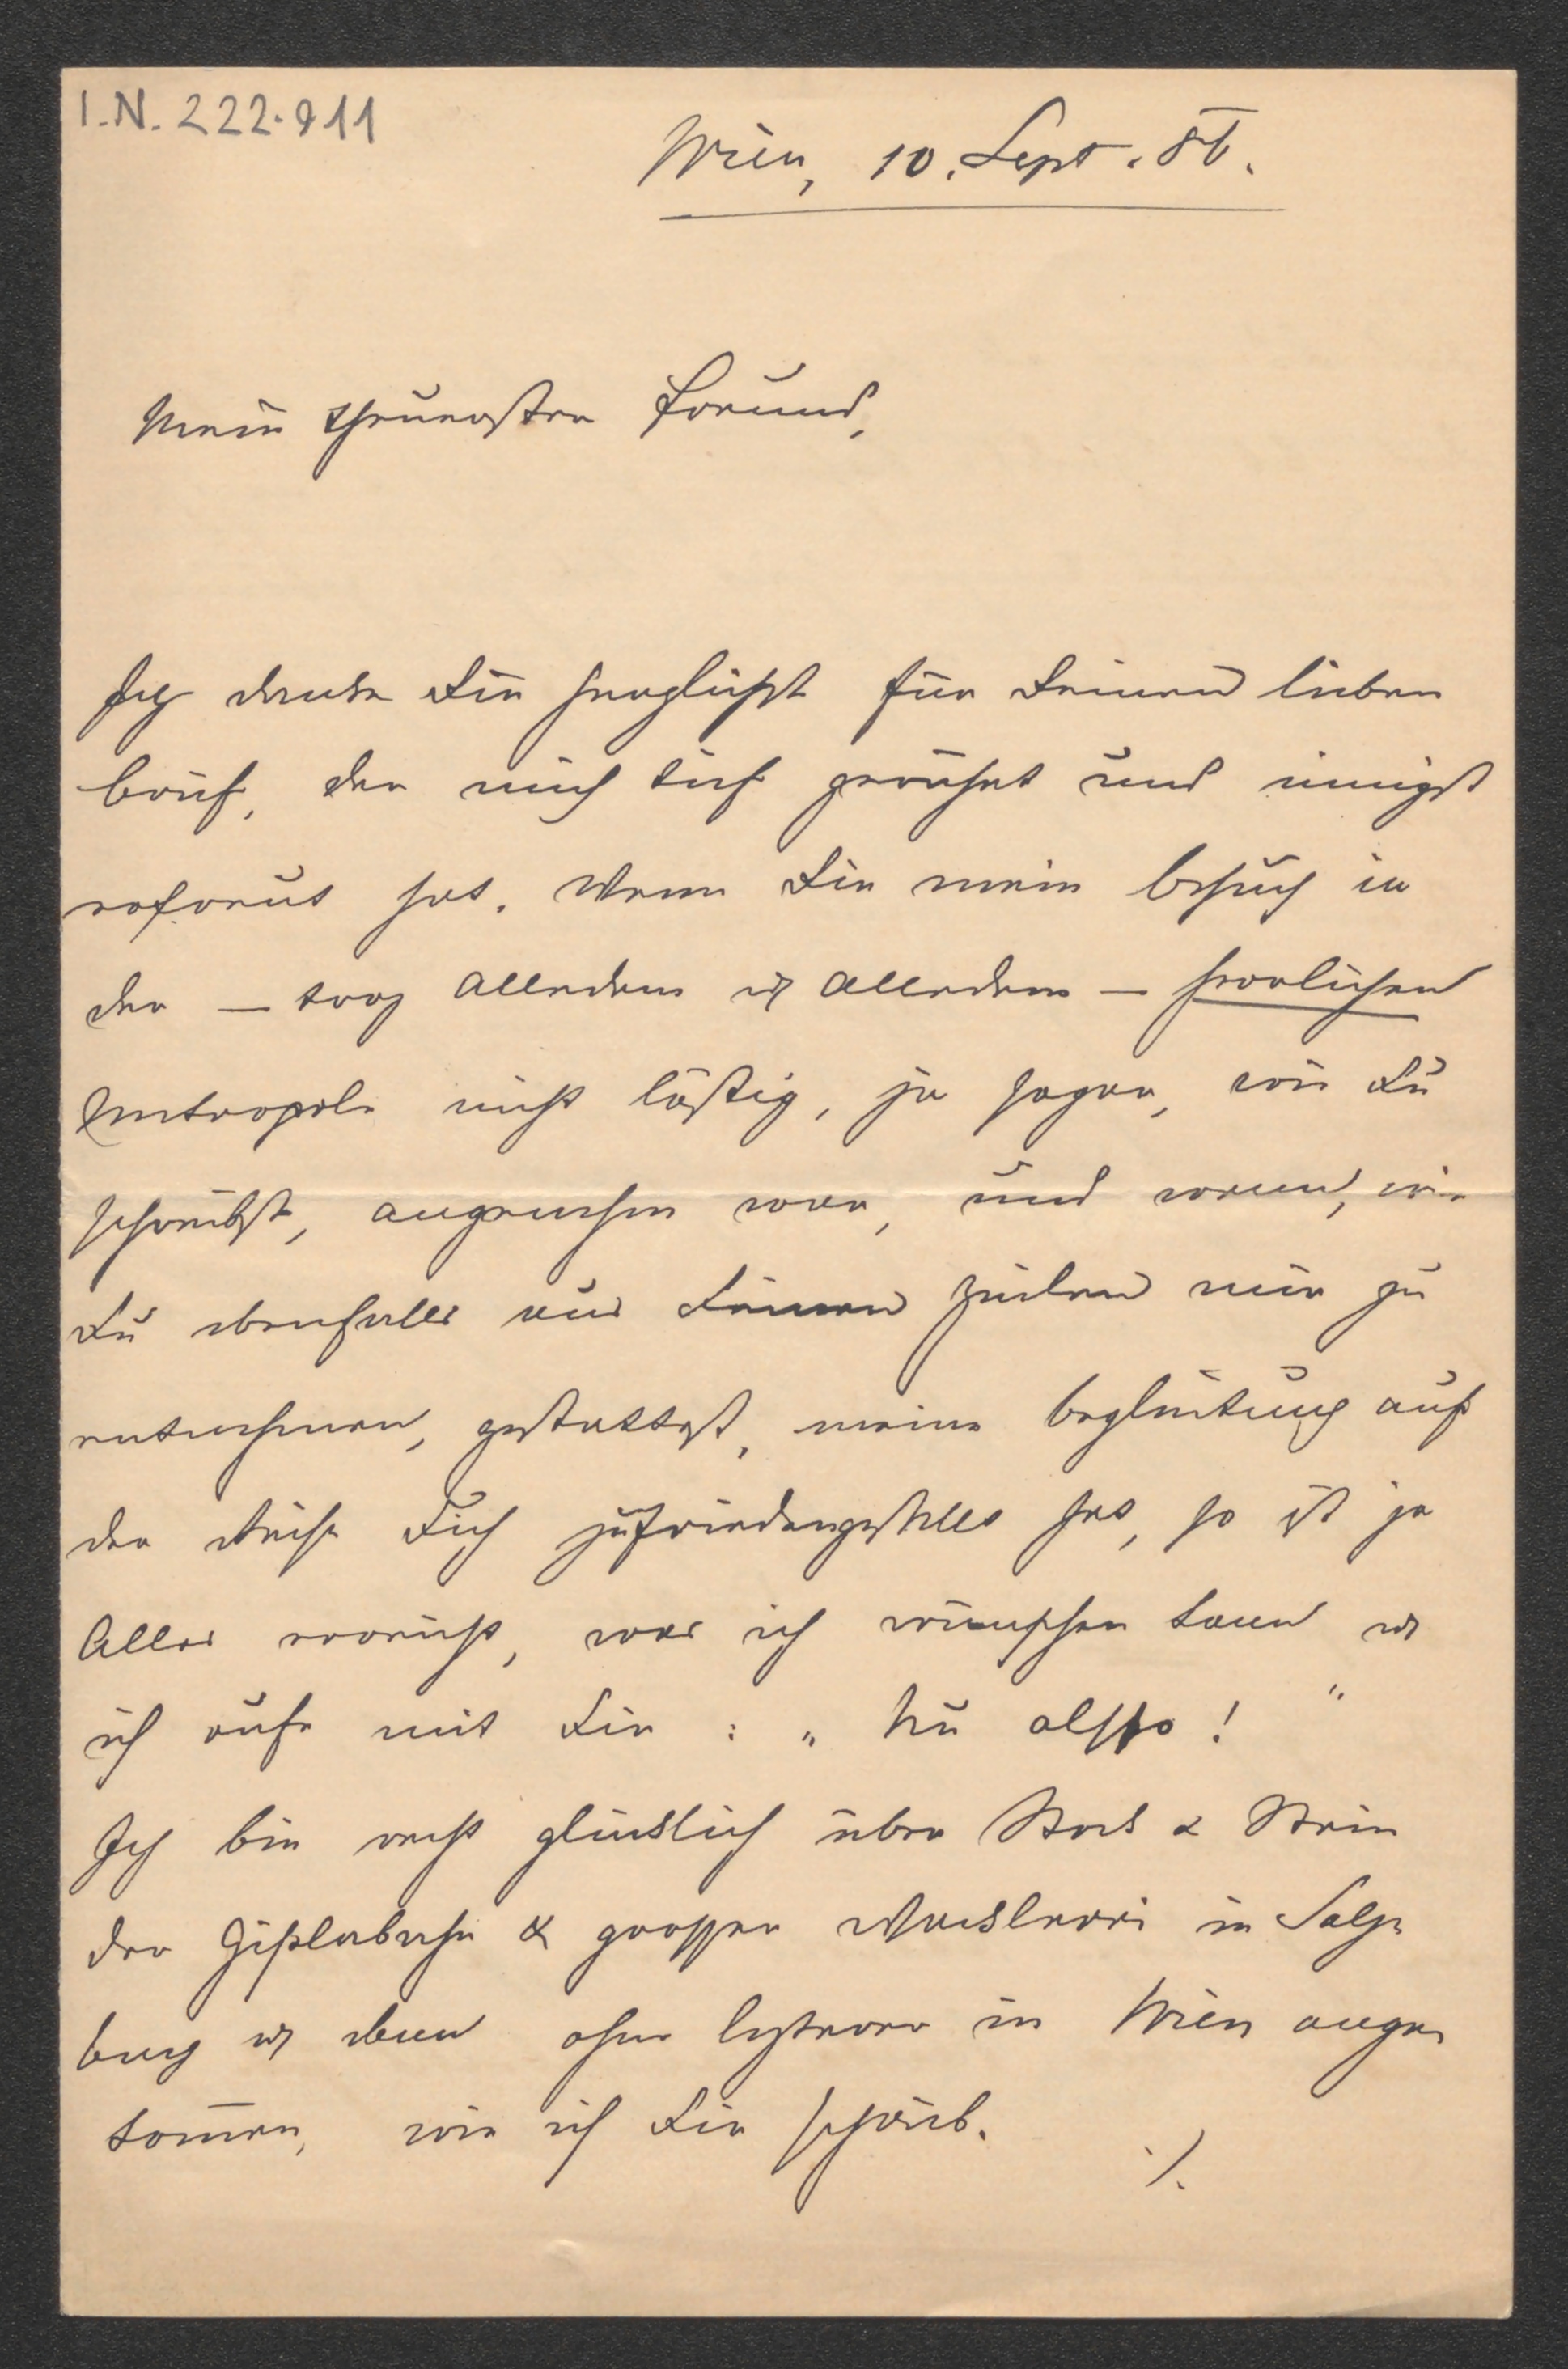 I.N. 222.911
Wien, 10. Sept. 86.
Mein theuerster Freund,
Ich danke Dir herzlichst für Deinen lieben
Brief, der mich tief gerührt und innigst
erfreut hat. Wenn Dir mein Besuch in
der — trotz alledem u alledem — herrlichen
Metropole nicht lästig, ja sogar, wie Du
schreibst, angenehm war, und wenn, wie
Du ebenfalls aus Deinen Zeilen mir zu
entnehmen, gestattest, meine Begleitung auf
der Reise Dich zufriedengestellt hat, so ist ja
Alles erreicht, was ich wünschen kann u
ich rufe mit Dir: „Nu also!"
Ich bin recht glücklich über Stock & Stein
der Giselabahn & grosser Wackelerei in Salz
burg u dann ohne letzterer in Wien ange
kommen, wie ich Dir schrieb.
./.